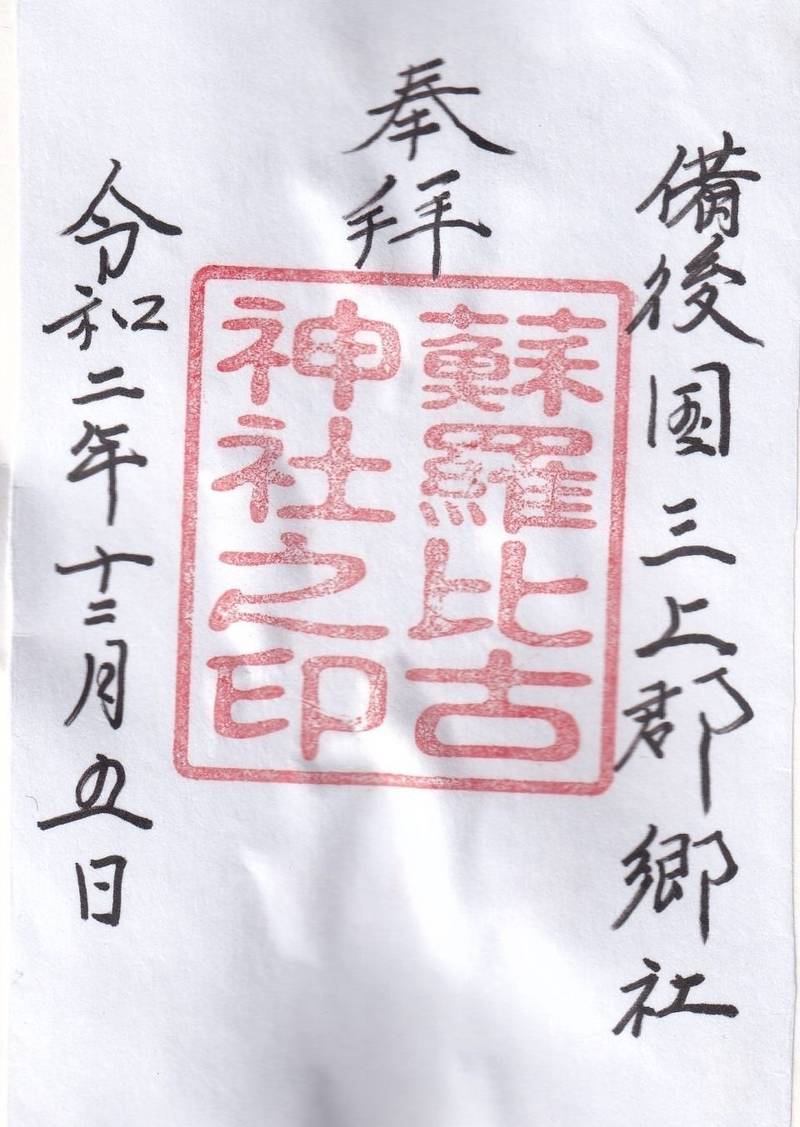 備後国三上郡郷社
奉拝
蘇羅比古
神社之印
令和二年十二月五日